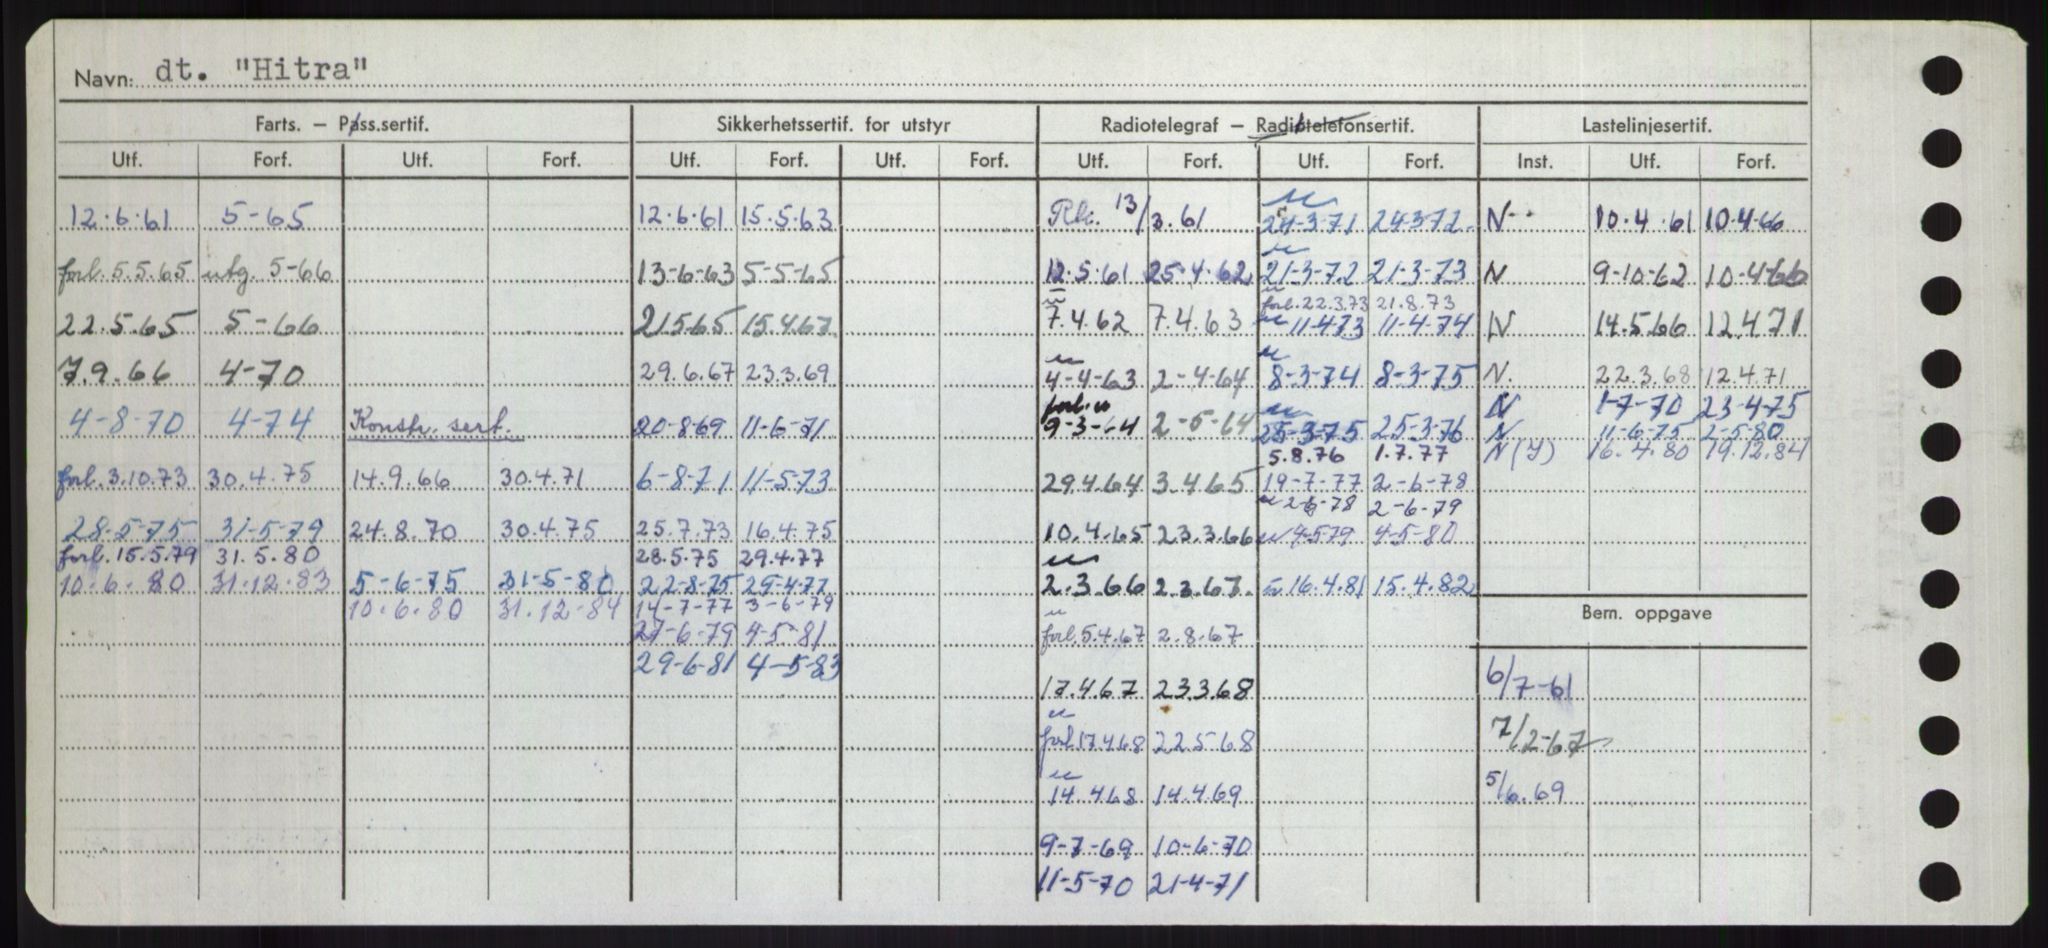 Navn: dt. "Hitra"
Farts. — Pass.sertif. Sikkerhetssertif. for utstyr Radiotelegraf — Radiotelefonsertif. Lastelinjesertif.
Utf. Forf. Utf. Forf. Utf. Forf. Utf. Forf. Utf. Forf. Utf. Forf. Inst. Utf. Forf.
12.6.61 5-65 12.6.61 15.5.63 13/3.61 24-3-71 24-3-72. N 10.4.61 10.4.66
forl. 5.5.65 utg. 5-66 13-6-63 5-5-65 12.5.61 25.4.62 21-3-72 21-3-73 N 9-10-62 10-4-66
forl. 22.3.73 21.8.73
22.5.65 5-66 21.5.65 15.4.67 7.4.62 7.4.63 11-4-73 11-4-74 N 14.5.66 12.4.71
7.9.66 4-70 29.6.67 23.3.69 4-4-63 2-4-64 8-3-74 8-3-75 N. 22.3.68 12.4.71
N 1-7-70 23-4-75
4-8-70 4-74 Konstr. sert. 20-8-69 11-6-71 forl. 9-3-64 2-6-64 25-3-75 25-3-76 N 11-6-75 2-5-80
5.8.76 1.7.77 N(I) 16.4.80 19.12.84
forl. 3.10.73 30.4.75 14.9.66 30.4.71 6-8-71 11-5-73 29.4.64 3.4.65 19-7-77 2-6-78
2-6-78 2-6-79
28-5-75 31-5-79 24.8.70 30.4.75 25.7.73 16.4.75 10.4.65 23.3.66 4-5-79 4-5-80
forl. 15.5.79 31.5.80 28.5.75 29.4.77
10.6.80 31.12.83 5-6-75 31-5-80 22-8-75 29-4-77 2.3.66 2.3.67. 16.4.81 15.4.82
10.6.80 31.12-84 14-7-77 3-6-79
Bem. oppgave
27-6-79 4-5-81 forl. 5.4.67 2.8.67
29-6-81 4-5-83
17.4.67 23.3.68 6/7-61
forl. 17.4.68 22.5.68 7/2-67
14.4.68 14.4.69 5/6.69
9-7-69 10-6-70
11-5-70 21-4-71